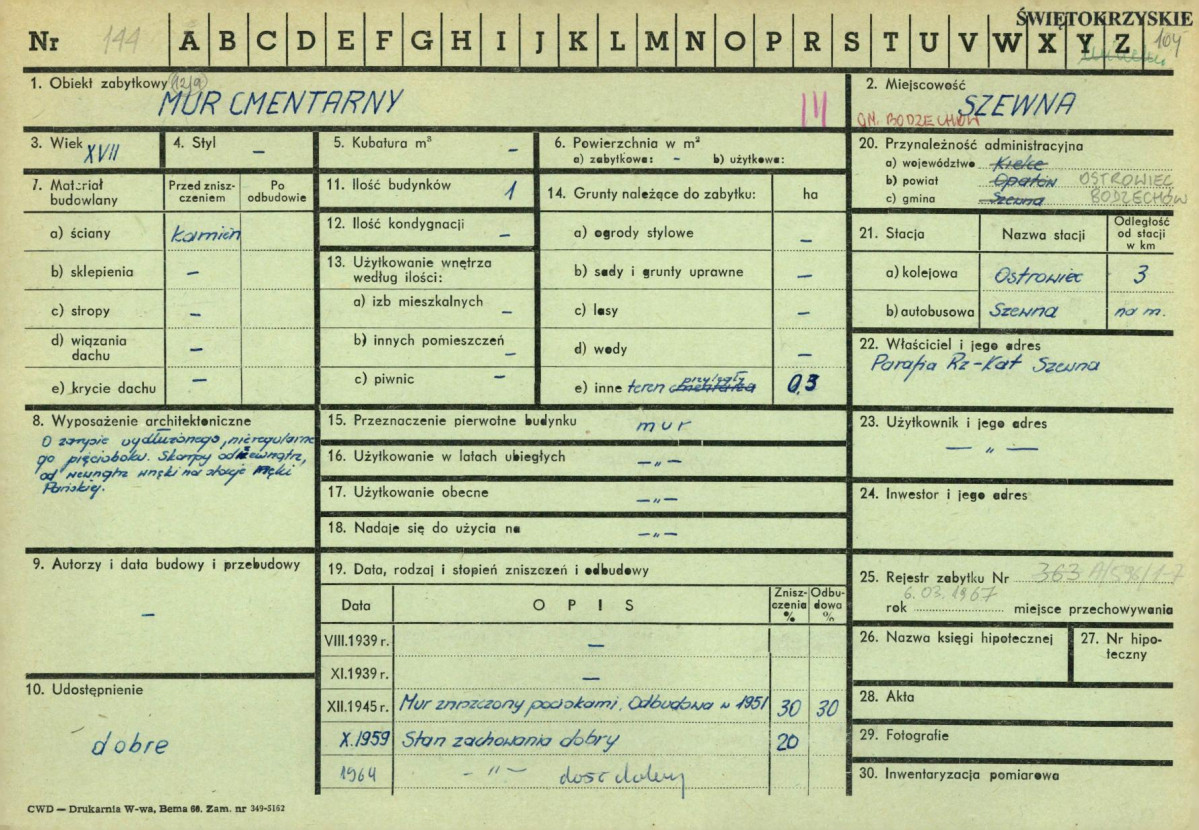 ŚWIĘTOKRZYSKIE
Nr 144 A B C D E F G H I J K L M N O P R S T U V W X Y Z 104
1. Obiekt zabytkowy 12/9
MUR CMENTARNY
III
2. Miejscowość
SZEWNA
GM. BODZECHÓW
3. Wiek XVII
4. Styl –
5. Kubatura m³ –
6. Powierzchnia w m²
a) zabytkowa: – b) użytkowa:
20. Przynależność administracyjna
a) województwo Kielce
b) powiat Opatów OSTROWIEC
c) gmina Szewna BODZECHÓW
7. Materiał budowlany
Przed zniszczeniem
Po odbudowie
a) ściany kamień
b) sklepienia –
c) stropy –
d) wiązania dachu –
e) krycie dachu –
11. Ilość budynków 1
12. Ilość kondygnacji –
13. Użytkowanie wnętrza
według ilości:
a) izb mieszkalnych –
b) innych pomieszczeń –
c) piwnic –
14. Grunty należące do zabytku: ha
a) ogrody stylowe –
b) sady i grunty uprawne –
c) lasy –
d) wody –
e) inne teren cmentarza przyległy 0,3
21. Stacja
Nazwa stacji
Odległość od stacji w km
a) kolejowa Ostrowiec 3
b) autobusowa Szewna na m.
22. Właściciel i jego adres
Parafia Rz-Kat Szewna
8. Wyposażenie architektoniczne
O zarysie wydłużonego, nieregularne
go pięcioboku. Skarpy od zewnątrz,
od wewnątrz wnęki na stacje Męki
Pańskiej.
15. Przeznaczenie pierwotne budynku mur
16. Użytkowanie w latach ubiegłych – „ –
17. Użytkowanie obecne – „ –
18. Nadaje się do użycia na – „ –
23. Użytkownik i jego adres
– „ –
24. Inwestor i jego adres
9. Autorzy i data budowy i przebudowy
–
19. Data, rodzaj i stopień zniszczeń i odbudowy
Data
O P I S
Zniszczenia %
Odbudowa %
VIII.1939 r. –
XI.1939 r. –
XII.1945 r. Mur zniszczony pociskami. Odbudowa w 1951 30 30
X.1959 Stan zachowania dobry 20
1964 – „ – dość dobry
25. Rejestr zabytku Nr 363 A/596/1-7
6.03.1967
rok miejsce przechowywania
26. Nazwa księgi hipotecznej
27. Nr hipoteczny
10. Udostępnienie
dobre
28. Akta
29. Fotografie
30. Inwentaryzacja pomiarowa
CWD — Drukarnia W-wa, Bema 66. Zam. nr 349-5162